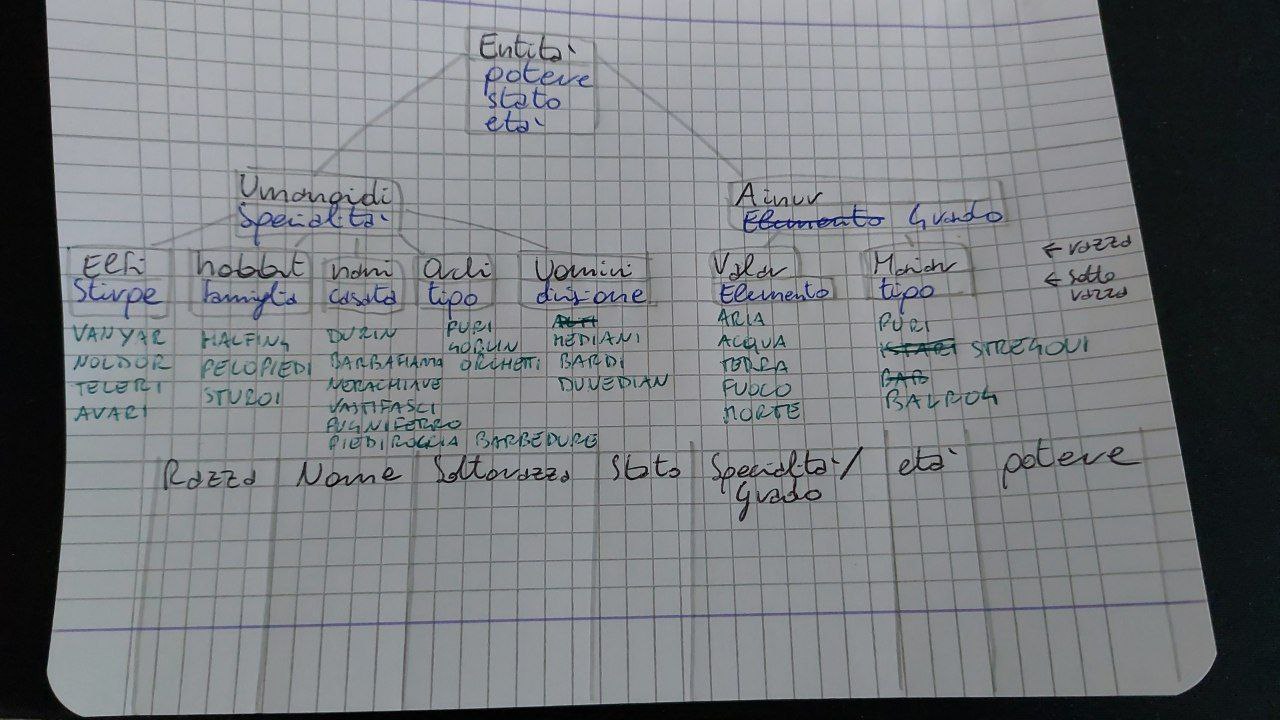 Entità
potere
stato
età
Umanoidi
Specialità
Ainur
Elemento Grado
Elfi
Stirpe
VANYAR
NOLDOR
TELERI
AVARI
hobbit
famiglia
HALFING
PELOPIEDI
STUROI
nani
casata
DURIN
BARBAFIAMMA
NERACHIAVE
VASTIFASCI
PUGNIFERRO
PIEDIROCCIA BARBEDURE
Orchi
tipo
PURI
GOBLIN
ORCHETTI
Uomini
divisione
MEDIANI
BARDI
DUNEDIAN
Valar
Elemento
ARIA
ACQUA
TERRA
FUOCO
MORTE
Maiar
tipo
PURI
ISTARI STREGONI
BALROG
← razza
← sotto
razza
Razza Nome Sottorazza Stato Specialità/ età potere
Grado